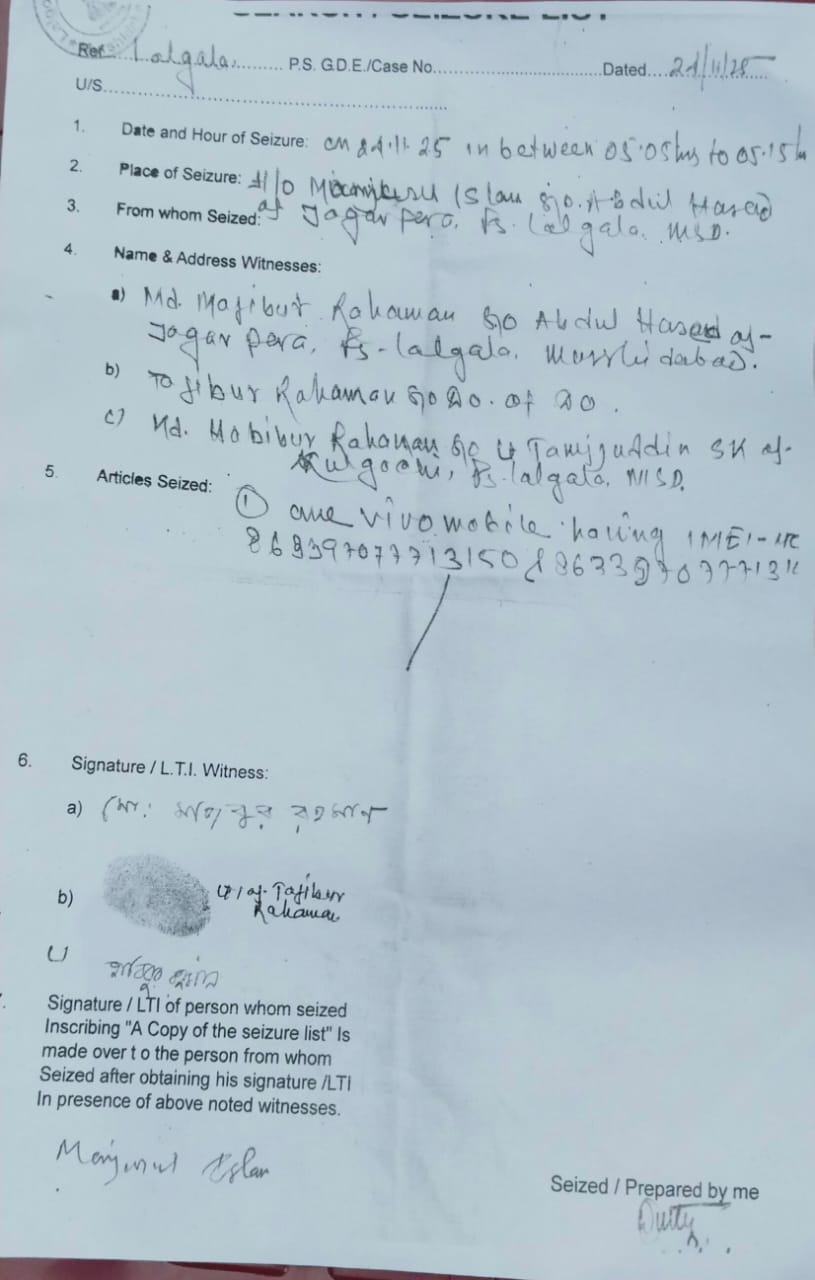 SEARCH / SEIZURE LIST
Ref Lalgala, P.S. G.D.E./Case No. Dated 21/11/25
U/S
1. Date and Hour of Seizure: on 21.11.25 in between 05.05 hrs to 05.15 h
2. Place of Seizure: H/O Islam S/o. Abdul Hased
3. From whom Seized: of Jagar para, Ps. Lalgala, MSD.
4. Name & Address Witnesses:
a) Md. Majibur Rahaman S/o Abdul Hased of-
Jagar para, Ps- lalgala, Murshidabad.
b) Tojibur Rahaman S/o Do. of Do.
c) Md. Habibur Rahaman S/o Tamijuddin SK of-
Ps. lalgala, MSD.
5. Articles Seized: ① one vivo mobile having IMEI-
& 
6. Signature / L.T.I. Witness:
a) মো: রহমান
b) LTI of- Tajibur
Rahaman
Signature / LTI of person whom seized
Inscribing "A Copy of the seizure list" Is
made over t o the person from whom
Seized after obtaining his signature /LTI
In presence of above noted witnesses.
Manjurul Islam
Seized / Prepared by me